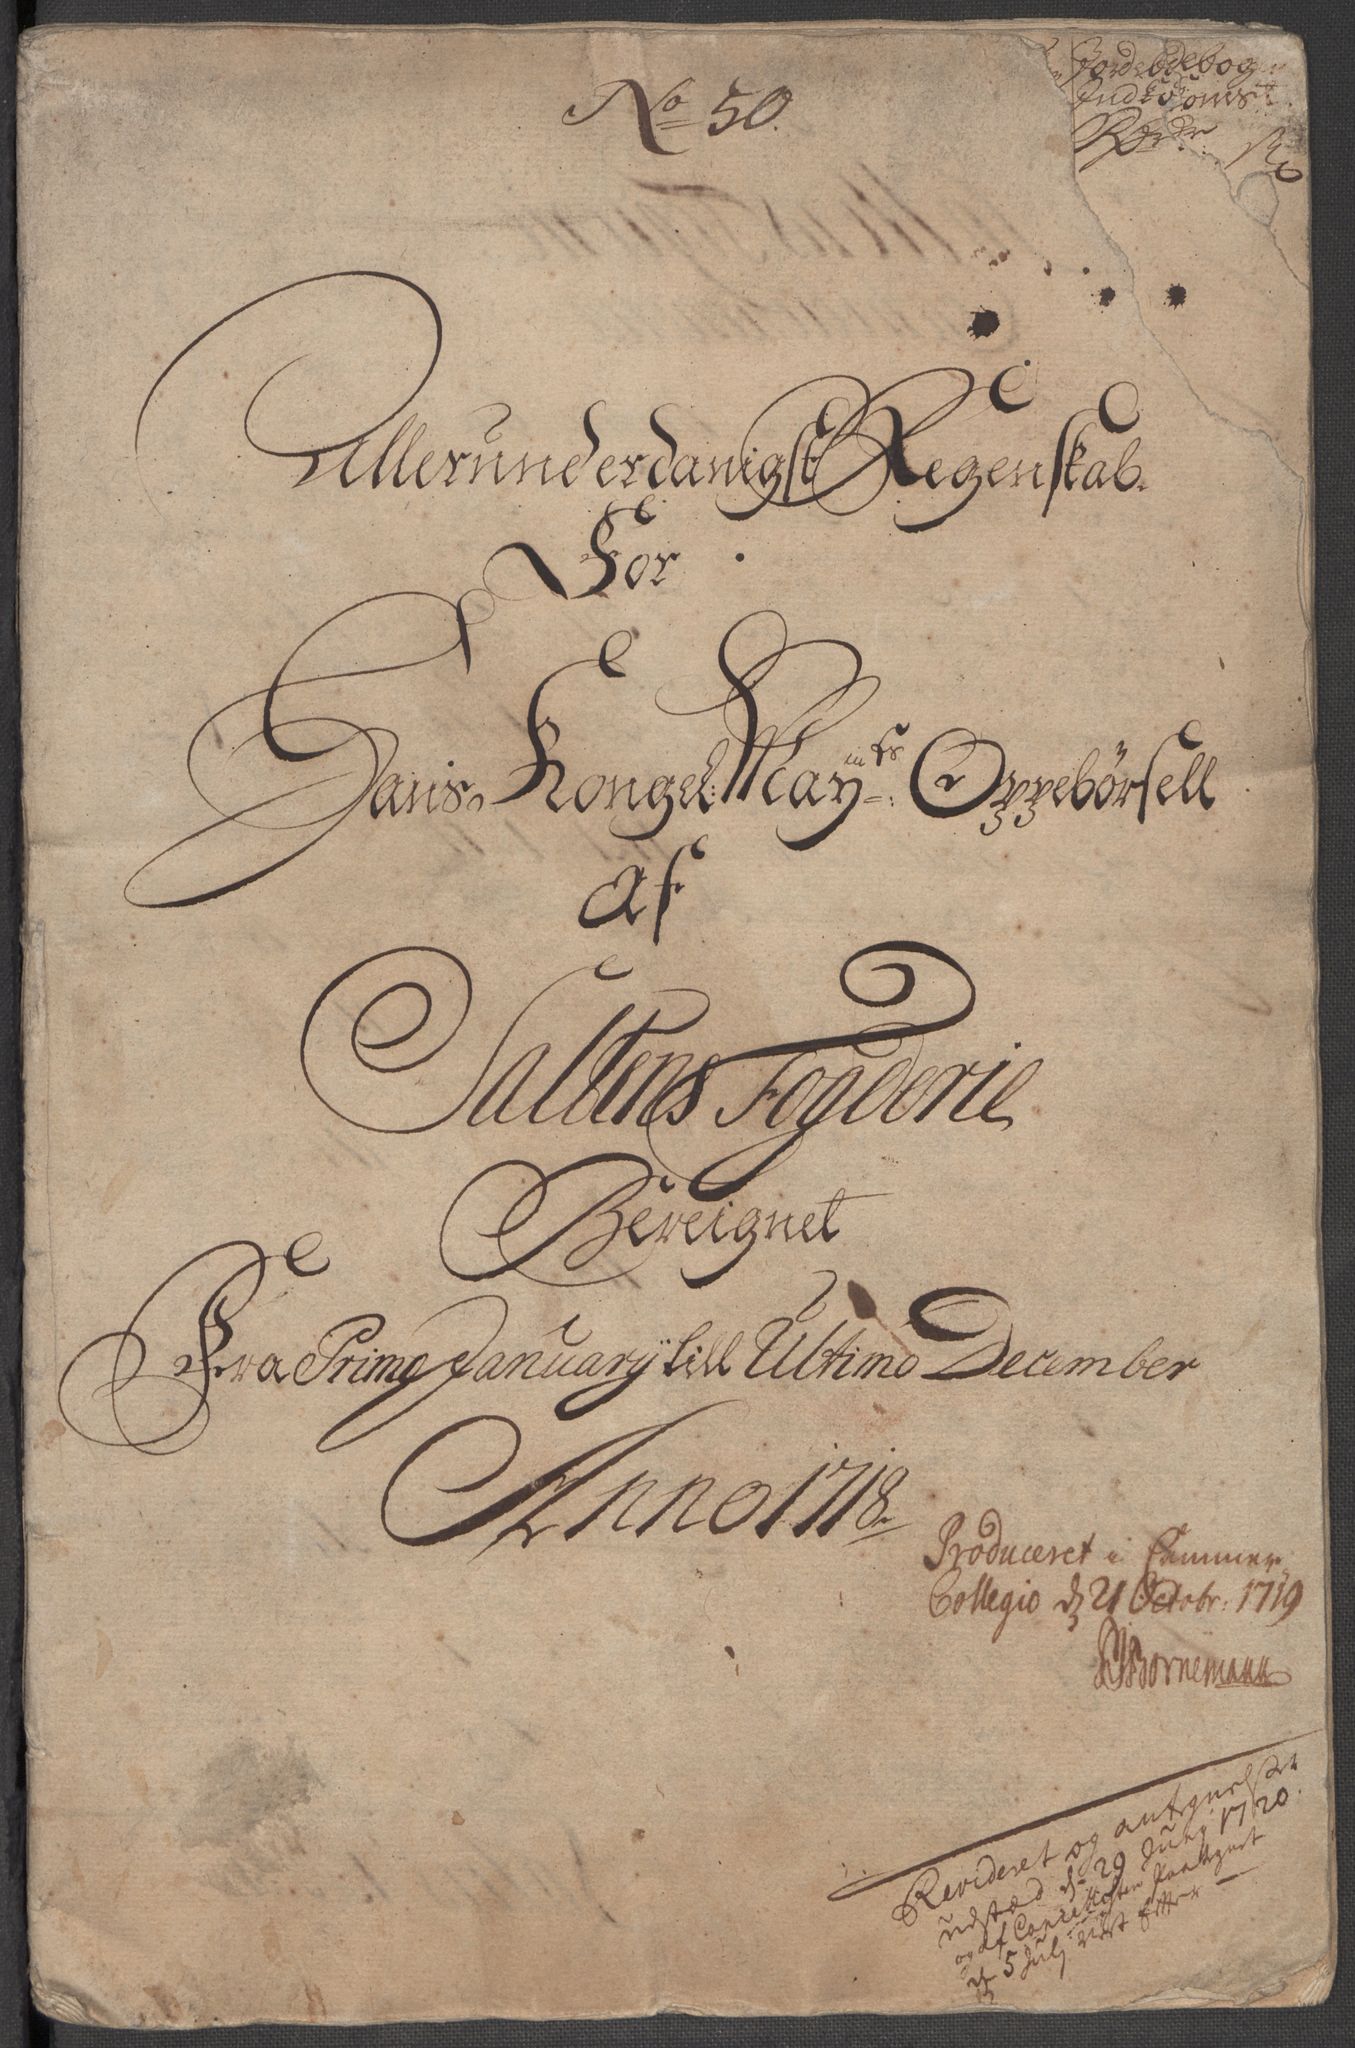 No 50.
Jordebog
Indkomst
Allerunderdanigst Regenskab.
For
Hans Kongel: May:ts Oppebörsell
af
Saltens Fogderie
Bereignet
Fra Primo Januarÿ till Ultimo December
Anno 1718.
Produceret i Cammer
Collegio d 21 Octobr: 1719
Bornemann
Revideret og antegnelser
udstæd d. 29 Junj 1720.
og af
d 5 Julj